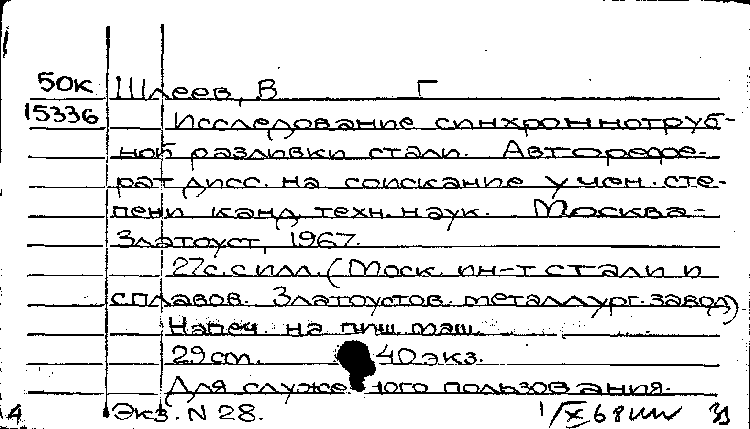 50к Шлеев, В Г
15336 Исследование синхроннотруб-
ной разливки стали. Авторефе-
рат дисс. на соискание учен. сте-
пени канд. техн. наук. Москва-
Златоуст, 1967.
27с. с илл. (Моск. ин-т стали и
сплавов. Златоустов. металлург. завод).
Напеч. на пиш. маш.
29 см. 40 экз.
Для служебного пользования.
Экз. N 28. 1/X 68